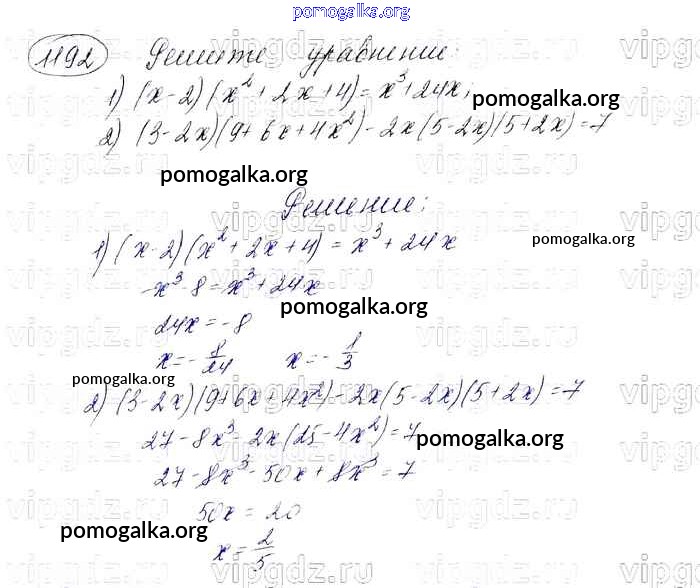 pomogalka.org
1192 Решите уравнение:
1) (x-2)(x² + 2x + 4) = x³ + 24x;
pomogalka.org
2) (3-2x)(9+6x+4x²) - 2x(5-2x)(5+2x) = 7
pomogalka.org
Решение:
1) (x-2)(x² + 2x + 4) = x³ + 24x
pomogalka.org
x³ - 8 = x³ + 24x
pomogalka.org
24x = -8
x = -8/24 x = -1/3
pomogalka.org
2) (3-2x)(9+6x+4x²) - 2x(5-2x)(5+2x) = 7
27 - 8x³ - 2x(25 - 4x²) = 7
pomogalka.org
27 - 8x³ - 50x + 8x³ = 7
50x = 20
pomogalka.org
x = 2/5
vipgdz.ru